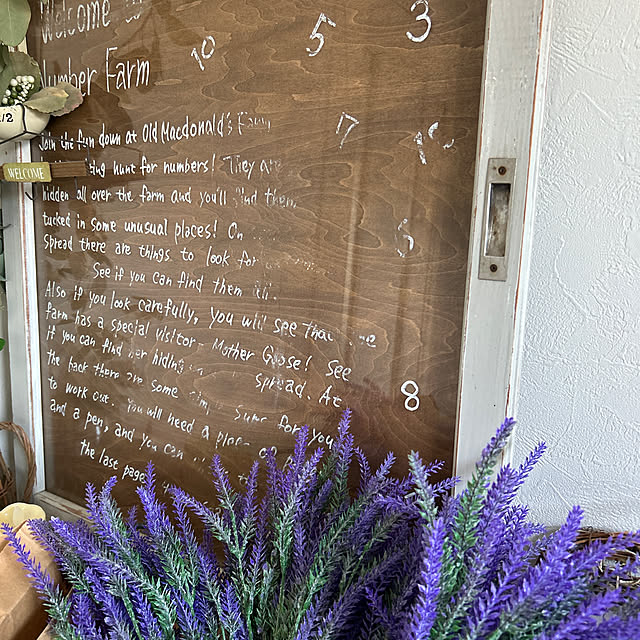 Welcome to
Number Farm
10
5
3
7
8
1/2
WELCOME
Join the fun down at Old Macdonald's Farm
hunt for numbers! They are
hidden all over the farm and you'll find them
tucked in some unusual places! On
spread there are things to look for
See if you can find them all.
Also if you look carefully, you will see that the
farm has a special visitor - Mother Goose! See
if you can find her hiding in spread. At
the back there are some sums for you
to work out. You will need a piece of
and a pen, and you can
the last page